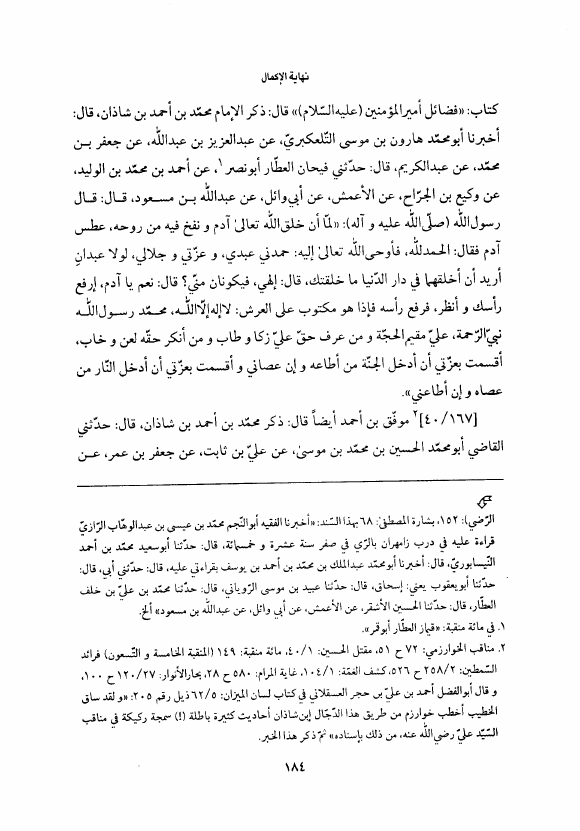 نهاية الإكمال
كتاب: «فضائل أميرالمؤمنين (عليه‌السّلام)» قال: ذكر الإمام محمّد بن أحمد بن شاذان، قال:
أخبرنا أبومحمّد هارون بن موسى التّلعكبريّ، عن عبدالعزيز بن عبدالله، عن جعفر بـن
محمّد، عن عبدالكريم، قال: حدّثني فيحان العطّار أبونصر ١، عن أحمد بن محمّد بن الوليد،
عن وكيع بن الجرّاح، عن الأعمش، عن أبي‌وائل، عن عبدالله بـن مسـعود، قـال: قـال
رسول‌الله (صلّى‌الله عليه و آله): «لمّا أن خلق‌الله تعالىٰ آدم و نفخ فيه من روحه، عطس
آدم فقال: الحمدلله، فأوحى‌الله تعالىٰ إليه: حمدني عبدي، و عزّتي و جلالي، لولا عبدانِ
أريد أن أخلقهما في دار الدّنيا ما خلقتك، قال: إلهي، فيكونان منّي؟ قال: نعم يا آدم، إرفع
رأسك و أنظر، فرفع رأسه فإذا هو مكتوب على العرش: لاإله‌إلّا‌اللـه، محـمّد رسـول‌اللـه
نبيّ‌الرّحمة، عليّ مقيم‌الحجّة و من عرف حقّ عليّ زكا و طاب و من أنكر حقّه لعن و خاب،
أقسمت بعزّتي أن أدخل الجنّة من أطاعه و إن عصاني و أقسمت بعزّتي أن أدخل النّار من
عصاه و إن أطاعني».
[٤٠/١٦٧] ٢ موفّق بن أحمد أيضاً قال: ذكر محمّد بن أحمد بن شاذان، قال: حدّثني
القاضي أبومحمّد الحسين بن محمّد بن موسىٰ، عن عليّ بن ثابت، عن جعفر بن عمر، عـن
الرّضي): ١٥٢، بشارة المصطفىٰ: ٦٨ بهذا السّند: «أخبرنا الفقيه أبوالنّجم محمّد بن عيسى بن عبدالوهّاب الرّازيّ
قراءة عليه في درب زامهران بالرّي في صفر سنة عشرة و خمسمائة، قال: حدّثنا أبوسعيد محمّد بن أحمد
النّيسابوريّ، قال: أخبرنا أبومحمّد عبدالملك بن محمّد بن أحمد بن يوسف بقراءتي عليه، قال: حدّثني أبي، قال:
حدّثنا أبويعقوب يعني: إسحاق، قال: حدّثنا عبيد بن موسى الرّوياني، قال: حدّثنا محمّد بن عليّ بن خلف
العطّار، قال: حدّثنا الحسين الأشقر، عن الأعمش، عن أبي وائل، عن عبدالله بن مسعود» ألخ.
١. في مائة منقبة: «قياز العطّار أبوقمر».
٢. مناقب الخوارزمي: ٧٢ ح ٥١، مقتل الحسين: ٤٠/١، مائة منقبة: ١٤٩ (المنقبة الخامسة و التّسعون) فرائد
السّمطين: ٢٥٨/٢ ح ٥٢٦، كشف الغمّة: ١٠٤/١، غاية المرام: ٥٨٠ ح ٢٨، بحارالأنوار: ١٢٠/٢٧ ح ١٠٠،
و قال أبوالفضل أحمد بن عليّ بن حجر العسقلاني في كتاب لسان الميزان: ٦٢/٥ ذيل رقم ٢٠٥: «و لقد ساق
الخطيب أخطب خوارزم من طريق هذا الدّجّال إبن‌شاذان أحاديث كثيرة باطلة (!) سمجة ركيكة في مناقب
السّيّد عليّ رضي‌الله عنه، من ذلك بإسناده» ثمّ ذكر هذا الخبر.
١٨٤